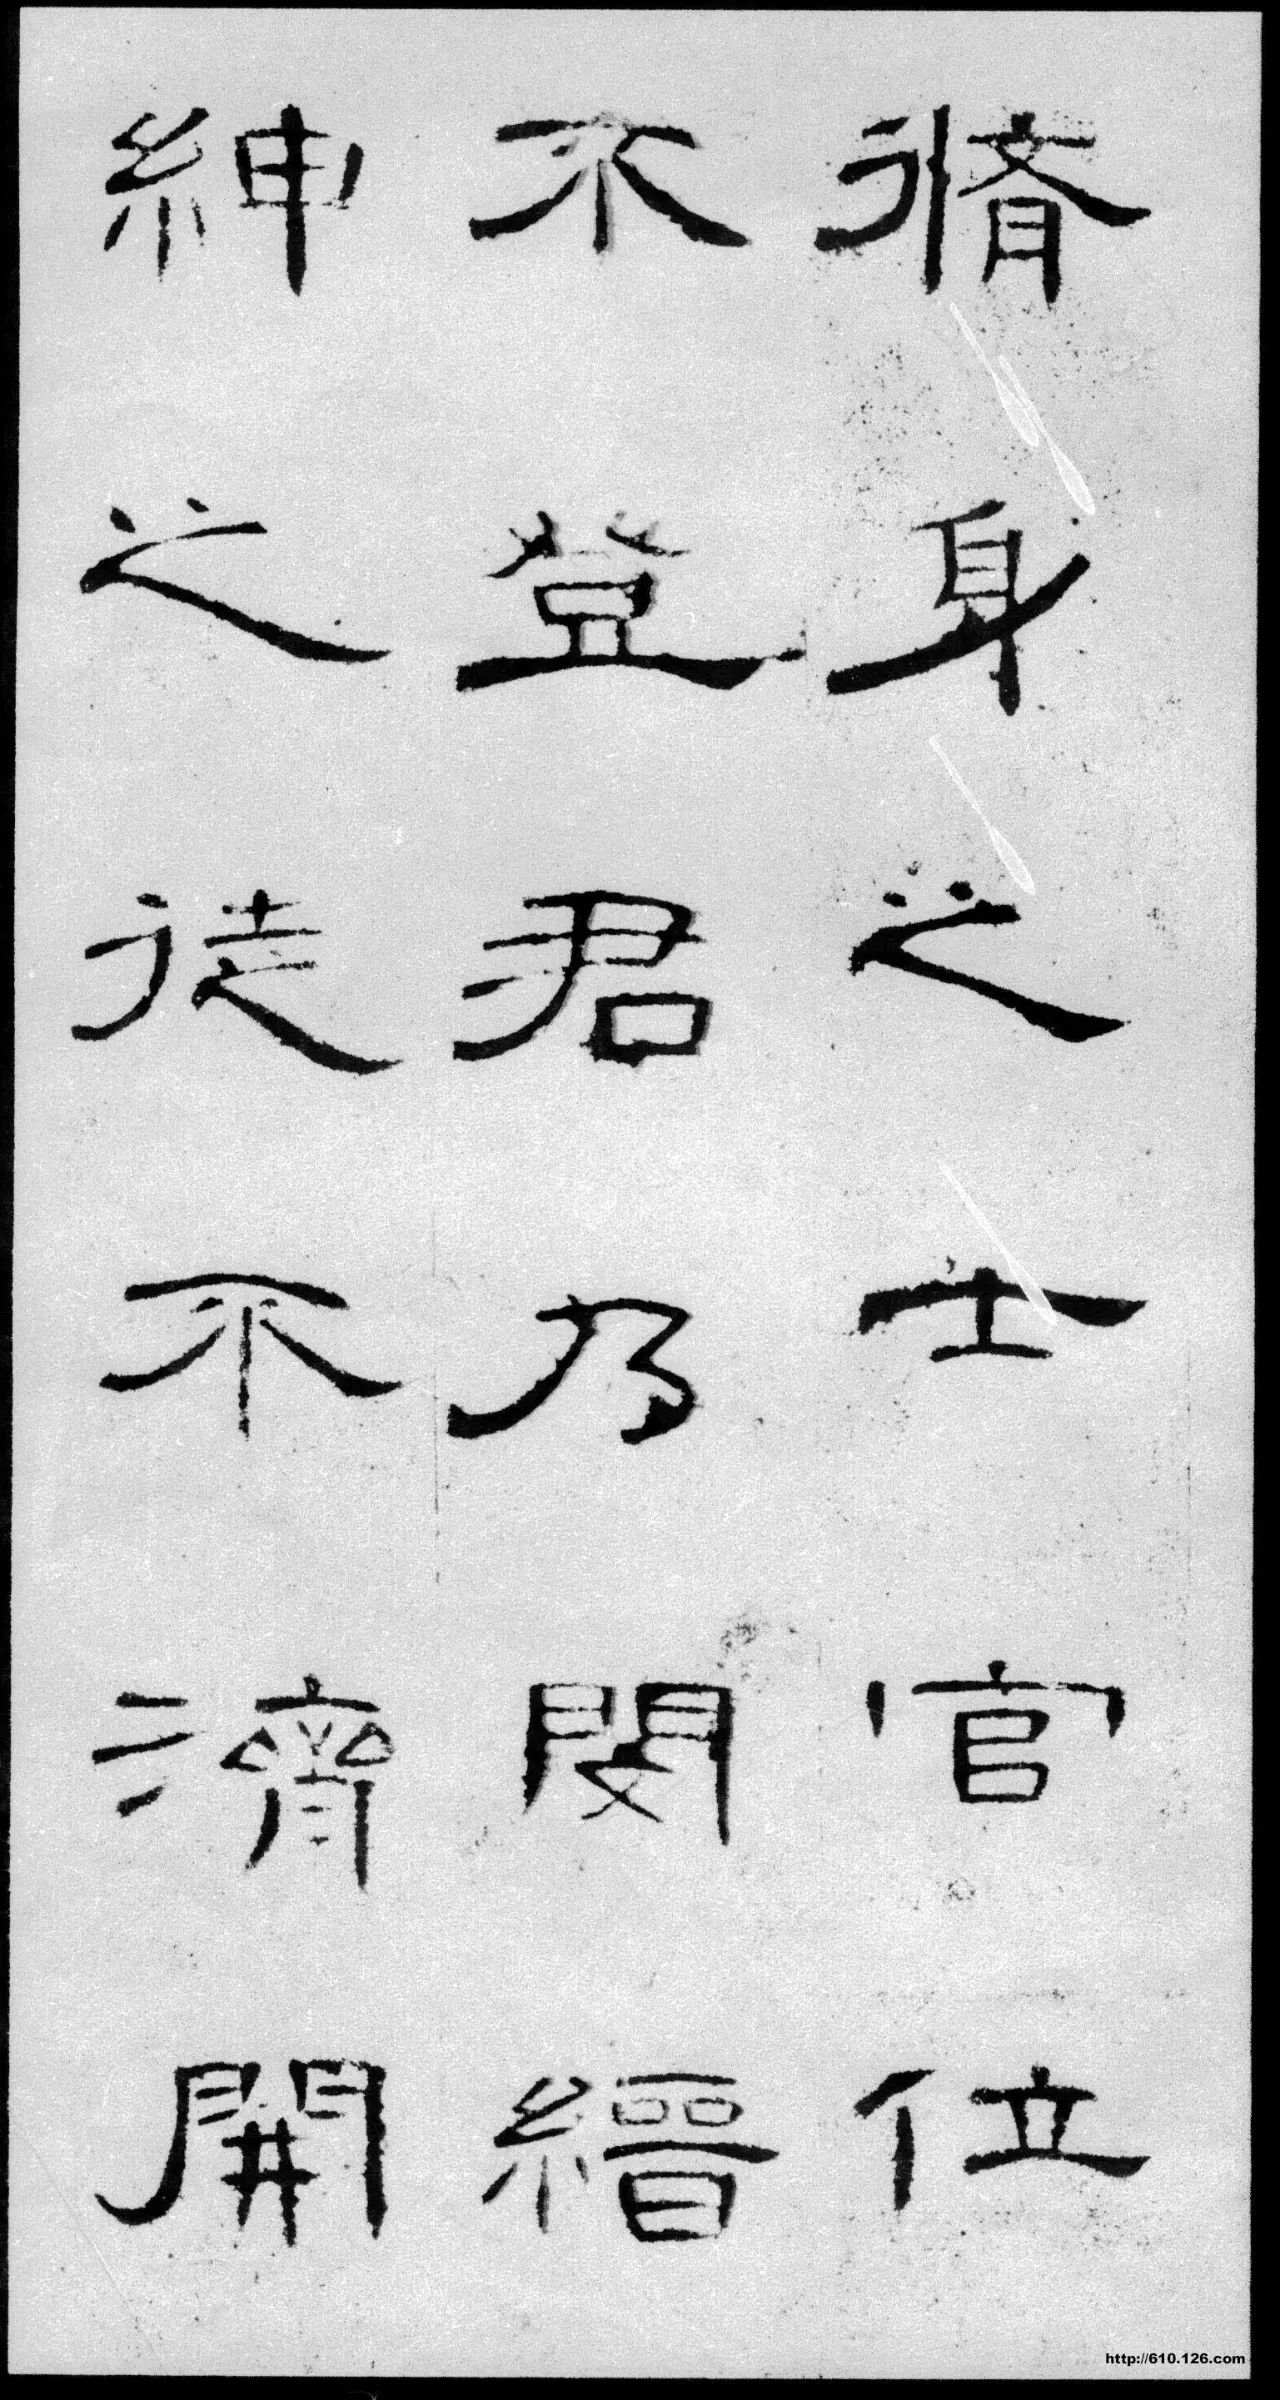 脩身之士官位
不登君乃閔縉
紳之徒不濟開
http://610.126.com